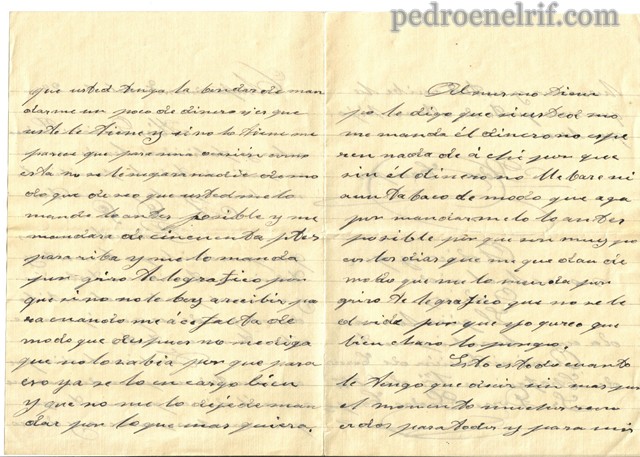 pedroenelrif.com
que usted tenga la bondad de man
darme un poco de dinero si es que
uste lo tiene y si no lo tiene me
parece que para una ocasión como
esta no se lo negara nadie de mo
do que deseo que usted me lo
mande lo antes posible y me
mandara de cincuenta ptes
para riba y me lo manda
por giro telegrafico por
que si no no lo boy a recibir pa
ra cuando me áce falta de
modo que despues no me diga
que no lo sabia por que para
eso ya se lo encargo bien
y que no me lo deje de man
dar por lo que mas quiera.
Al mismo tiem
po le digo que si usted no
me manda él dinero no espe
ren nada de á chi por que
sin él dinero no llebare ni
aun tabaco de modo que aga
por mandarmelo lo antes
posible por que son muy po
cos los dias que me quedan de
modo que me lo manda por
giro telegrafico que no se le
olvide por que yo qureo que
bien claro lo pongo.
Esto es todo cuanto
le tengo que decir sin mas por
el momento muchos recu
erdos para todos y para mis